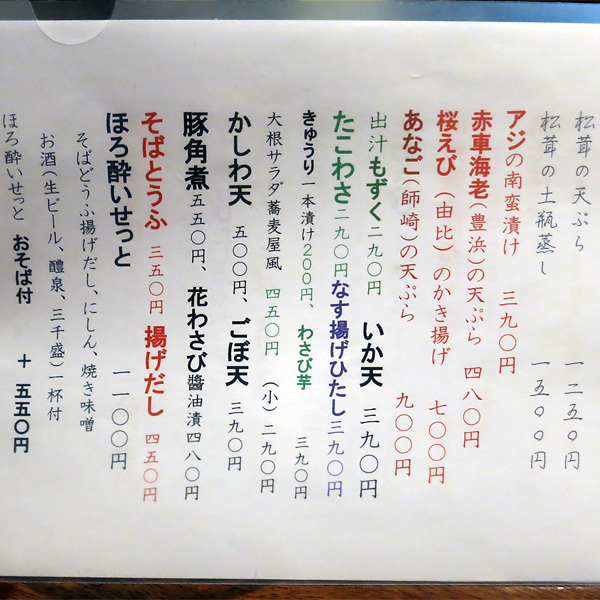 松茸の天ぷら 一二五〇円
松茸の土瓶蒸し 一五〇〇円
アジの南蛮漬け 三九〇円
赤車海老(豊浜)の天ぷら 四八〇円
桜えび(由比)のかき揚げ 七〇〇円
あなご(師崎)の天ぷら 九〇〇円
出汁もずく二九〇円 いか天 三九〇円
たこわさ二九〇円なす揚げひたし三九〇円
きゅうり一本漬け200円、わさび芋 三九〇円
大根サラダ蕎麦屋風 四五〇円 (小)二九〇円
かしわ天 五〇〇円、ごぼ天 三九〇円
豚角煮五五〇円、花わさび醬油漬四八〇円
そばとうふ 三五〇円 揚げだし 四五〇円
ほろ酔いせっと 一一〇〇円
そばどうふ揚げだし、にしん、焼き味噌
お酒(生ビール、醴泉、三千盛)一杯付
ほろ酔いせっと おそば付 + 五五〇円